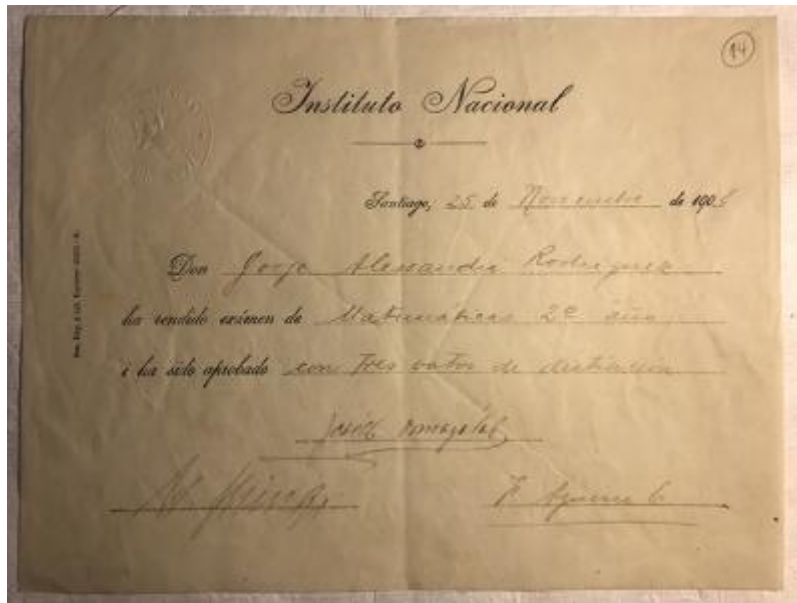 14
Instituto Nacional
Santiago, 25 de Noviembre de 190
Don Jorge Alessandri Rodriguez
ha rendido exámen de Matemáticas 2º año
i ha sido aprobado con tres votos de distinción